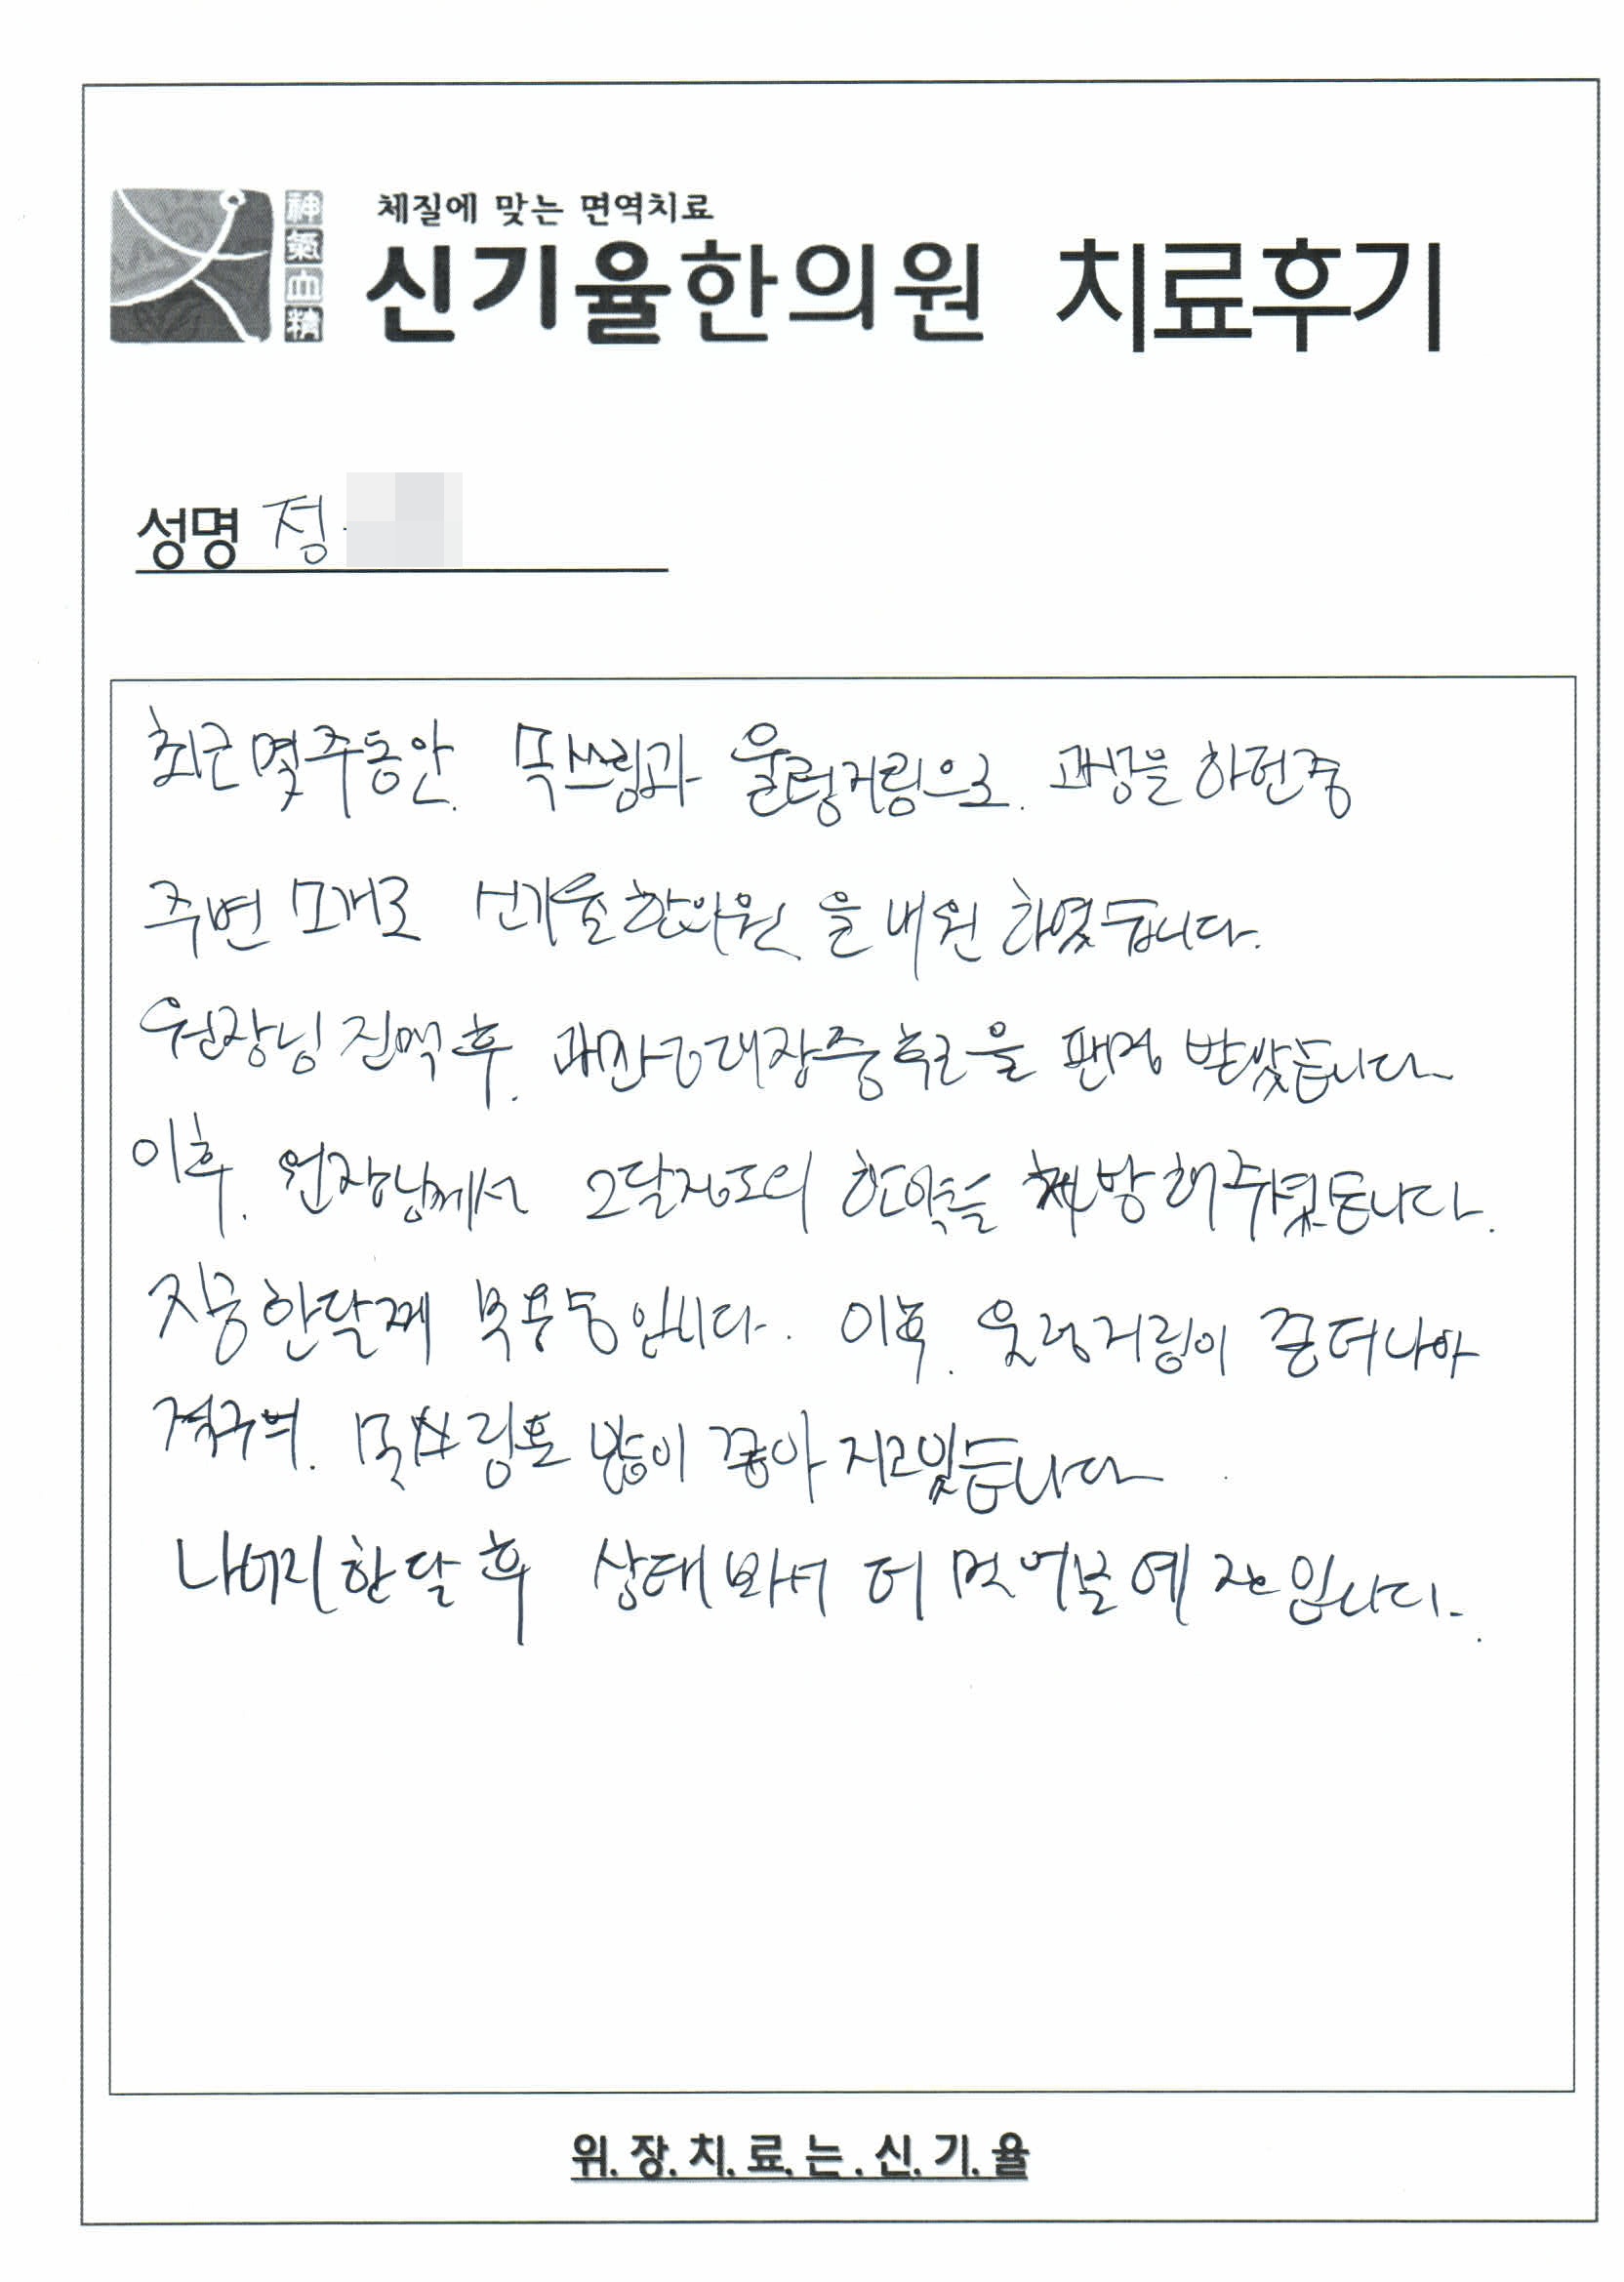 神
氣
血
精
체질에 맞는 면역치료
신기율한의원 치료후기
성명 정
최근 몇 주동안. 목쓰림과 울렁거림으로. 고생을 하던중
주변 소개로 신기율한의원을 내원 하였습니다.
원장님 진맥 후. 과민성대장증후군을 판정 받았습니다
이후. 원장님께서 2달정도의 한약을 처방해주셨습니다.
지금 한달째 복용중입니다. 이후. 울렁거림이 좀 더 나아
졌구여. 목쓰림도 많이 좋아 지고있습니다
나머지 한달 후 상태봐서 더 먹어볼 예정입니다.
위.장.치.료.는.신.기.율